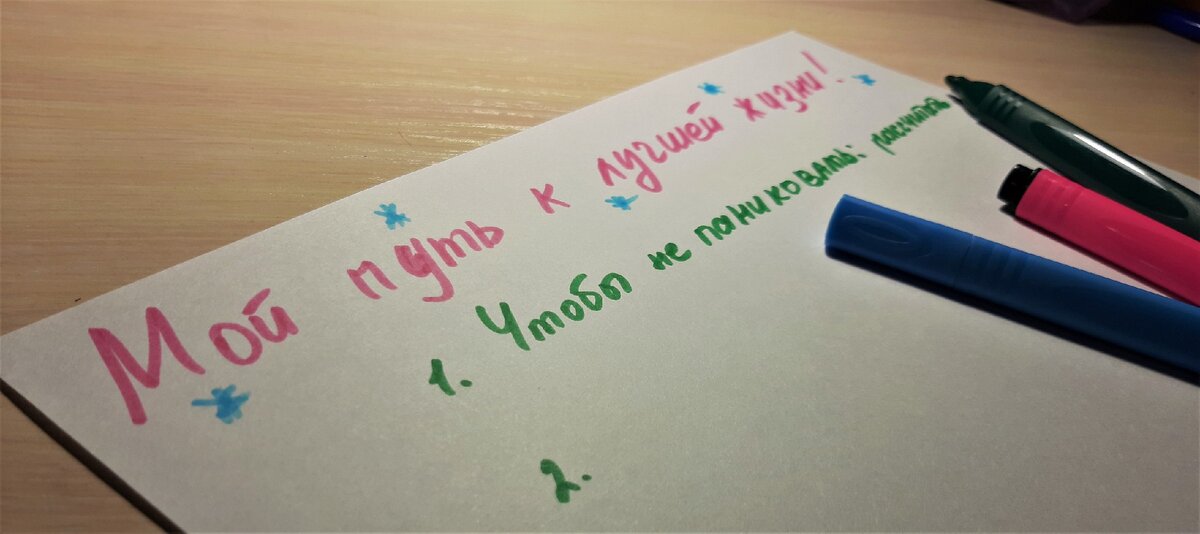 Мой путь к лучшей жизни!
1. Чтобы не паниковать:
2.